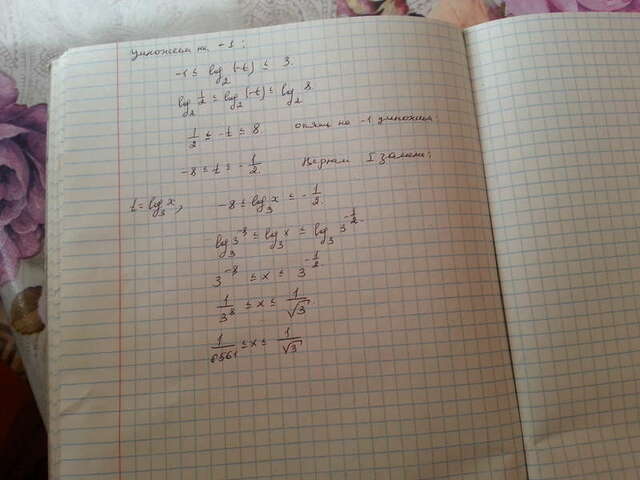 умножим на -1:
-1 ≤ log₂(-t) ≤ 3.
log₂ 1/2 ≤ log₂(-t) ≤ log₂ 8
1/2 ≤ -t ≤ 8 опять на -1 умножим:
-8 ≤ t ≤ -1/2. Вернем I замен:
t = log₃ x, -8 ≤ log₃ x ≤ -1/2.
log₃ 3⁻⁸ ≤ log₃ x ≤ log₃ 3^(-1/2).
3⁻⁸ ≤ x ≤ 3^(-1/2)
1/3⁸ ≤ x ≤ 1/√3
1/6561 ≤ x ≤ 1/√3